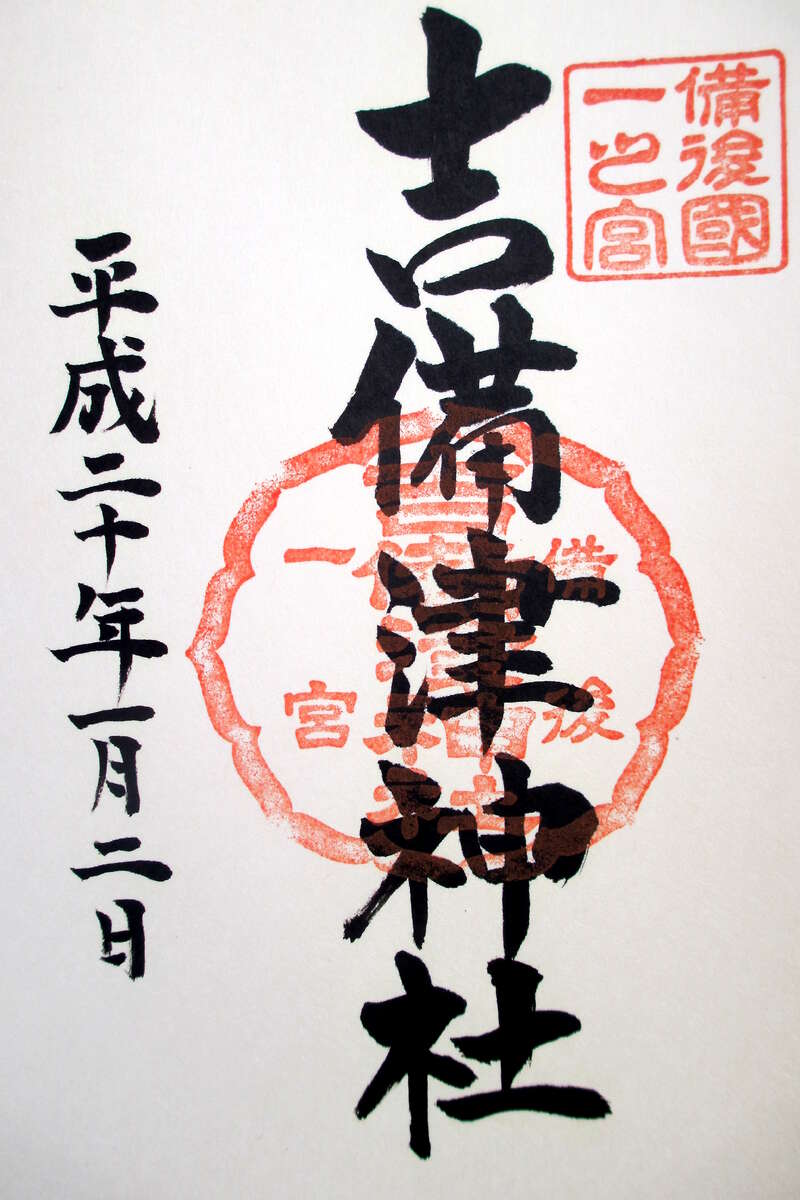 備後國
一之宮
吉備津神社
備後
一宮
平成二十年一月二日